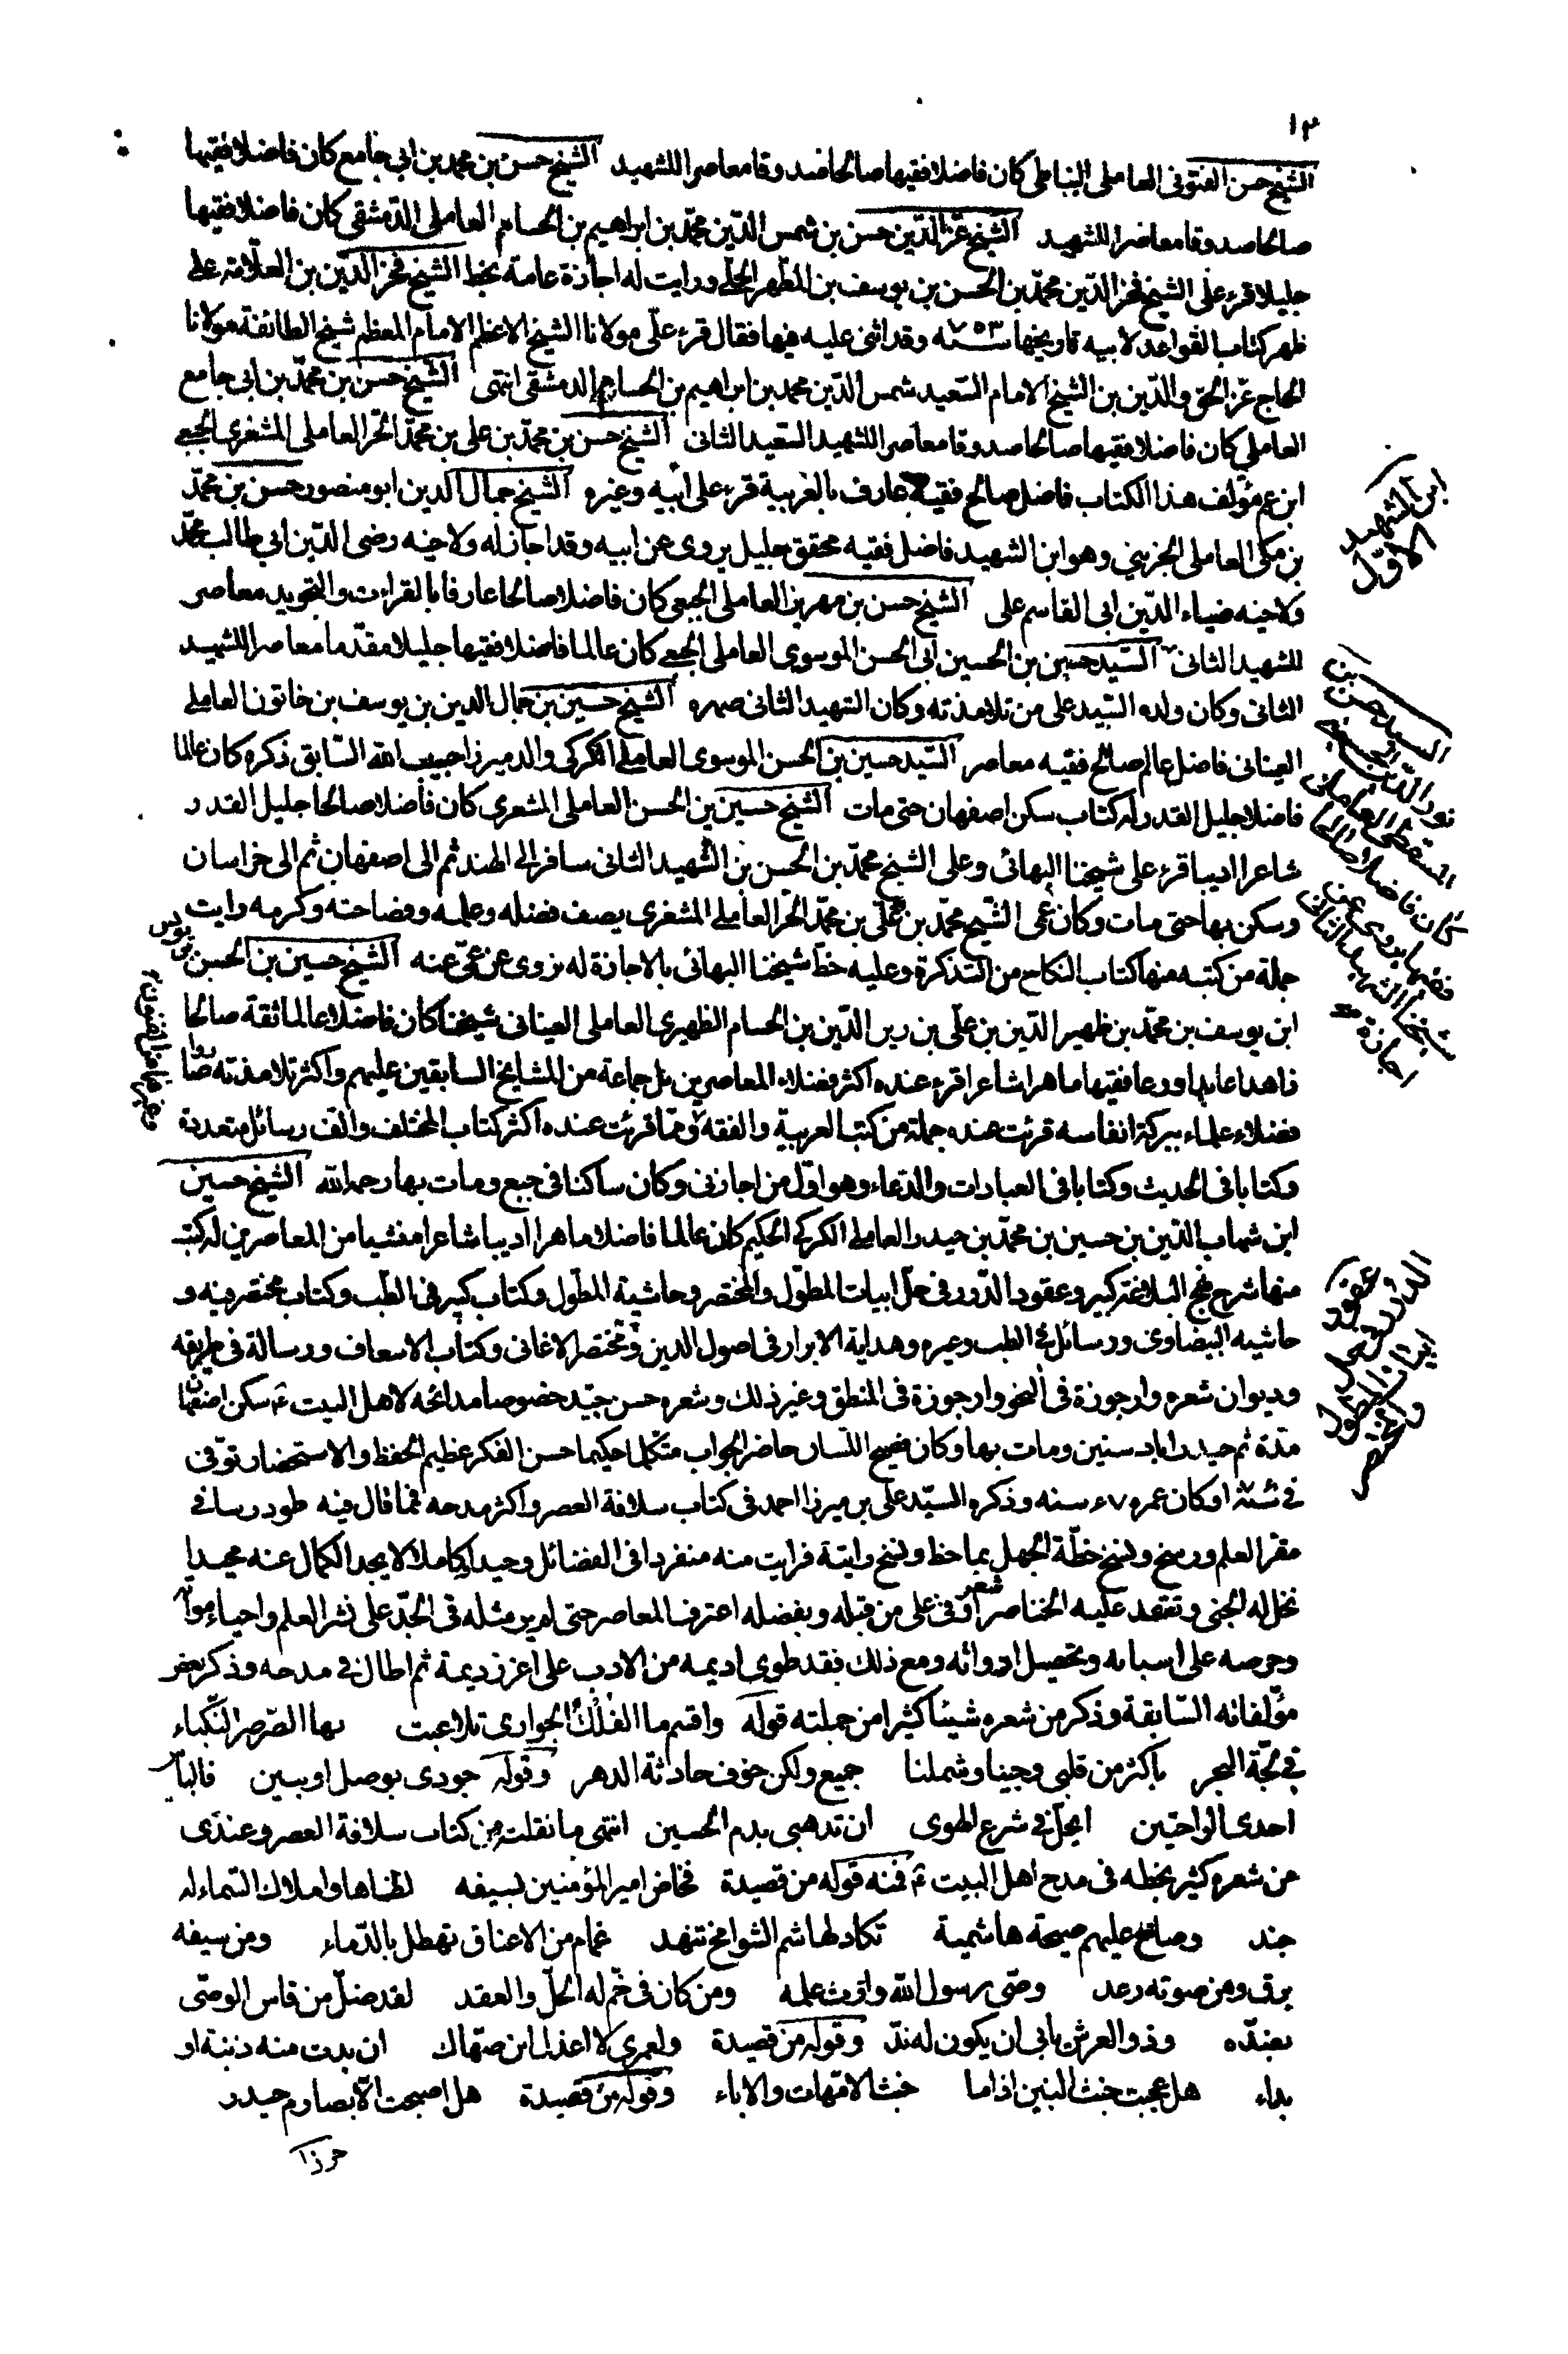 ١٣
الشيخ حسن الفتوني العاملي النباطي كان فاضلا فقيها صالحا صدوقا معاصرا للشهيد الشيخ حسن بن محمد بن ابي جامع كان فاضلا فقيها
صالحا صدوقا معاصرا للشهيد الشيخ عز الدّين حسن بن شمس الدّين محمّد بن ابراهيم بن الحسام العاملي الدّمشقي كان فاضلا فقيها
جليلا قرء على الشيخ فخر الدّين محمّد بن الحسن بن يوسف بن المطّهر الحلّي ورايت له اجازة عامة بخط الشيخ فخر الدّين بن العلّامة على
ظهر كتاب القواعد لابيه تاريخها سنة ٧٥٣ وقد اثنى عليه فيها فقال قرء علّى مولانا الشيخ الاعظم الامام المعظم شيخ الطائفة مولانا
الحاج عزّ الحق والدّين بن الشيخ الامام السّعيد شمس الدّين محمد بن ابراهيم بن الحسام الدمشقى انتهى الشيخ حسن بن محمّد بن ابي جامع
العاملي كان فاضلا فقيها صالحا صدوقا معاصرا للشهيد السّعيد الثاني الشيخ حسن بن محمّد بن على بن محمّد الحّر العاملي المشغري الجبعي
ابن عم مؤلف هذا الكتاب فاضل صالح فقيه عارف بالعربية قرء على أبيه وغيره الشيخ جمال الدين ابو منصور حسن بن محمّد
بن مكى العاملى الجزيني وهو ابن الشهيد فاضل فقيه محقق جليل يروى عن ابيه وقد اجاز له ولاخيه رضى الدّين ابي طالب محمّد
ولاخيه ضياء الدّين ابى القاسم على الشيخ حسن بن مهر بن العاملى الجبعي كان فاضلا صالحا عارفا بالقراءت والتجويد معاصر
للشهيد الثانى السّيد حسين بن الحسين ابي الحسن الموسوى العاملى الجبعي كان عالما فاضلا فقيها جليلا مقدّما معاصرا للشهيد
الثانى وكان ولده السّيد على من تلامذته وكان الشهيد الثانى صهره الشيخ حسين بن جمال الدين بن يوسف بن خاتون العاملي
العينانى فاضل عالم صالح فقيه معاصر السّيد حسين بن الحسن الموسوى العاملي الكركى والد ميرزا حبيب الله السّابق ذكره كان عالما
فاضلا جليل القدر له كتاب سكن اصفهان حتى مات الشيخ حسين بن الحسن العاملى المشغرى كان فاضلا صالحا جليل القدر
شاعرا اديبا قرء على شيخنا البهائى وعلى الشيخ محمّد بن الحسن بن الشهيد الثانى سافر الى الهند ثم الى اصفهان ثم الى خراسان
وسكن بها حتى مات وكان عمى الشيخ محمّد بن علّى بن محمّد الحّر العاملي المشغرى يصف فضله وعلمه وفصاحته وكرمه رايت
جملة من كتبه منها كتاب النكاح من التذكرة وعليه خطّ شيخنا البهائى بالاجازة له نروى عن عمّى عنه الشيخ حسين بن الحسن بن يونس
ابن يوسف بن محمّد بن ظهير الدّين بن علّى بن زين الدّين بن الحسام الظهيرى العاملى العينانى شيخنا كان فاضلا عالما ثقة صالحا
زاهدا عابدا ورعا فقيها ماهرا شاعرا قرء عنده اكثر فضلاء المعاصرين بل جماعة من المشايخ السابقين عليهم واكثر تلامذته صاروا
فضلاء علماء ببركة انفاسه قرئت عنده جملة من كتب العربية والفقه وممّا قرئت عنده اكثر كتاب المختلف والّف رسائل متعددة
وكتابا فى الحديث وكتابا فى العبادات والدّعاء وهو اوّل من اجازنى وكان ساكنا فى جبع ومات بها رحمه الله الشيخ حسين
ابن شهاب الدّين بن حسين بن محمّد بن حيدر العاملي الكركي الحكيم كان عالما فاضلا ماهرا اديبا شاعرا منشيا من المعاصرين له كتب
منها شرح نهج البلاغة كبير وعقود الدّرر فى حلّ ابيات المطوّل والمختصر وحاشية المطوّل وكتاب كبير فى الطّب وكتاب مختصر فيه و
حاشيه البيضاوى ورسائل في الطب وغيره وهداية الابرار فى اصول الدين ومختصر الاغانى وكتاب الاسعاف ورسالة فى طريقه
وديوان شعره وارجوزة فى النحو وارجوزة فى المنطق وغير ذلك وشعره حسن جيّد خصوصا مدائحه لاهل البيت ع سكن اصفهان
مدّة ثم حيدراباد سنين ومات بها وكان فصيح اللّسان حاضر الجواب متكلما حكيما حسن الفكر عظيم الحفظ والاستحضار توّفى
في سنة وكان عمره سنه وذكره السيّد على بن ميرزا احمد فى كتاب سلافة العصر واكثر مدحه فمما قال فيه طود رسا في
مقر العلم ورسخ ونسخ خطّة الجهل بما خط ونسخ رايته فرايت منه منفردا فى الفضائل وحيدا وكاملا لا يجد الكمال عنه محيدا
تحل له الجبى وتعقد عليه الخناصر اوفى على من قبله وبفضله اعترف المعاصر حتى لم ير مثله فى الجدّ على نشر العلم واحياء مواته
وحرصه على اسبابه وتحصيل ادوائه ومع ذلك فقد طوى اديمه من الادب على اغزر ديمة ثم اطال في مدحه وذكر بعض
مؤلفاته السّابقة وذكر من شعره شيئا كثيرا من جملته قوله واقسم ما الفلك الجوارى تلاعبت بها الصّرصر النّكباء
في لجّة البحر باكثر من قلبى وجيبا وشملنا جميع ولكن خوف حادثة الدهر وقوله جودى بوصل او ببين فالياس
احدى الراحتين ايحلّ في شرع الهوى ان تذهبى بدم الحسين انتهى ما نقلت من كتاب سلافة العصر وعندى
من شعره كثير بخطه فى مدح اهل البيت ع فمنه قوله من قصيدة فخاض امير المؤمنين بسيفه لظاها واملاك السّماء له
جند وصاح عليهم صيحة هاشمية تكاد لها شم الشوامخ تنهد غمام من الاعناق تهطل بالدّماء ومن سيفه
برق ومن صوته رعد وصّى رسول الله وارث علمه ومن كان فى خّم له الحلّ والعقد لقد ضلّ من قاس الوصّى
بضدّه وذو العرش يابى ان يكون له ندّ وقوله من قصيدة ولعمرى لا اعذل ابن صهّاك ان بدت منه ذنبة او
بداء هل عجبت خبث البنين اذا ما خبث الامّهات والاباء وقوله من قصيدة هل اصبحت الّا بصارم حيدر
ابن الشهيد
الاوّل
السيد حسن بن
نور الدّين
السقطى العاملى
كان فاضلا صالحا
فقيها يروى عن
شيخنا الشهيد الثانى
اجازة
عقود
الدّرر في حل
ابيات المطول
والمختصر